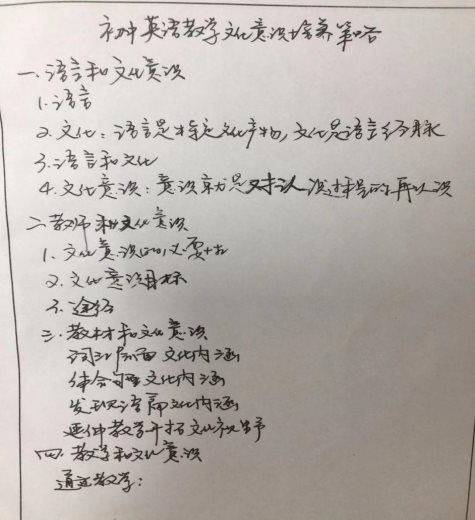 初中英语教学文化意识培养策略
一.语言和文化意识
1.语言
2.文化:语言是特定文化产物,文化是语言经脉
3.语言和文化
4.文化意识:意识就是对认识过程的再认识
二.教师和文化意识
1.文化意识的必要性
2.文化意识目标
3.途径
三.教材和文化意识
词汇层面文化内涵
体会句型文化内涵
发现语篇文化内涵
延伸教学开拓文化视野
四.教学和文化意识
通过教学: